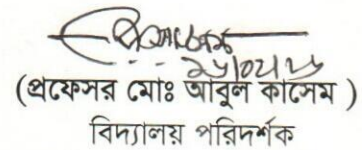 (প্রফেসর মোঃ আবুল কাসেম )
বিদ্যালয় পরিদর্শক